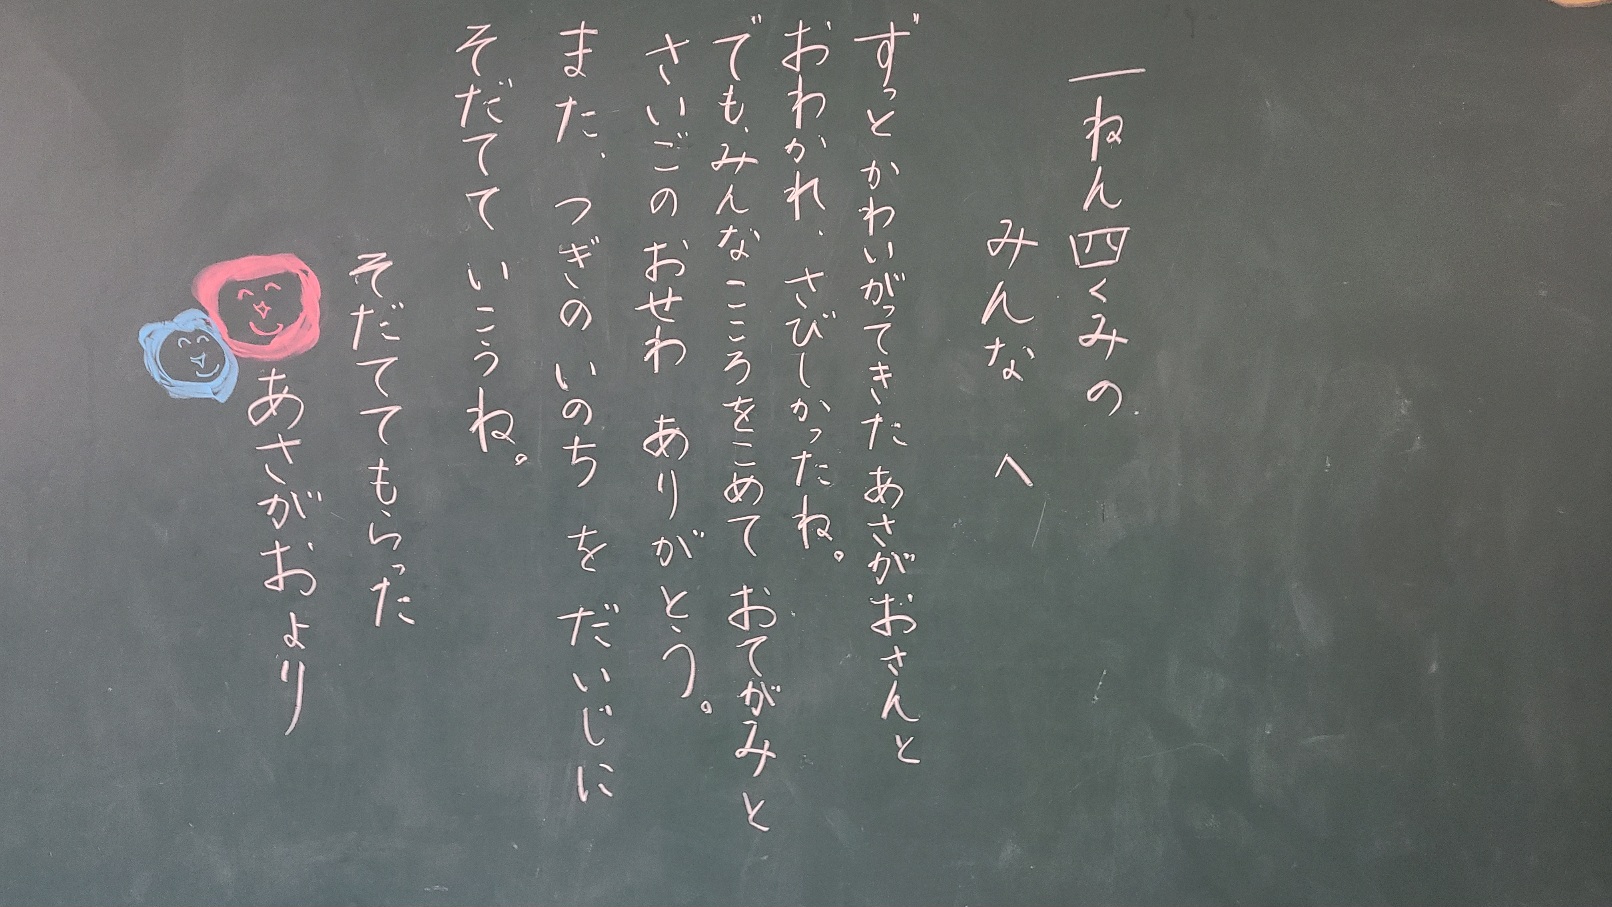 一ねん四くみの
みんな へ
ずっと かわいがってきた あさがおさんと
おわかれ、さびしかったね。
でも、みんな こころをこめて おてがみと
さいごの おせわ ありがとう。
また、つぎの いのち を だいじに
そだてて いこうね。
そだててもらった
あさがおより